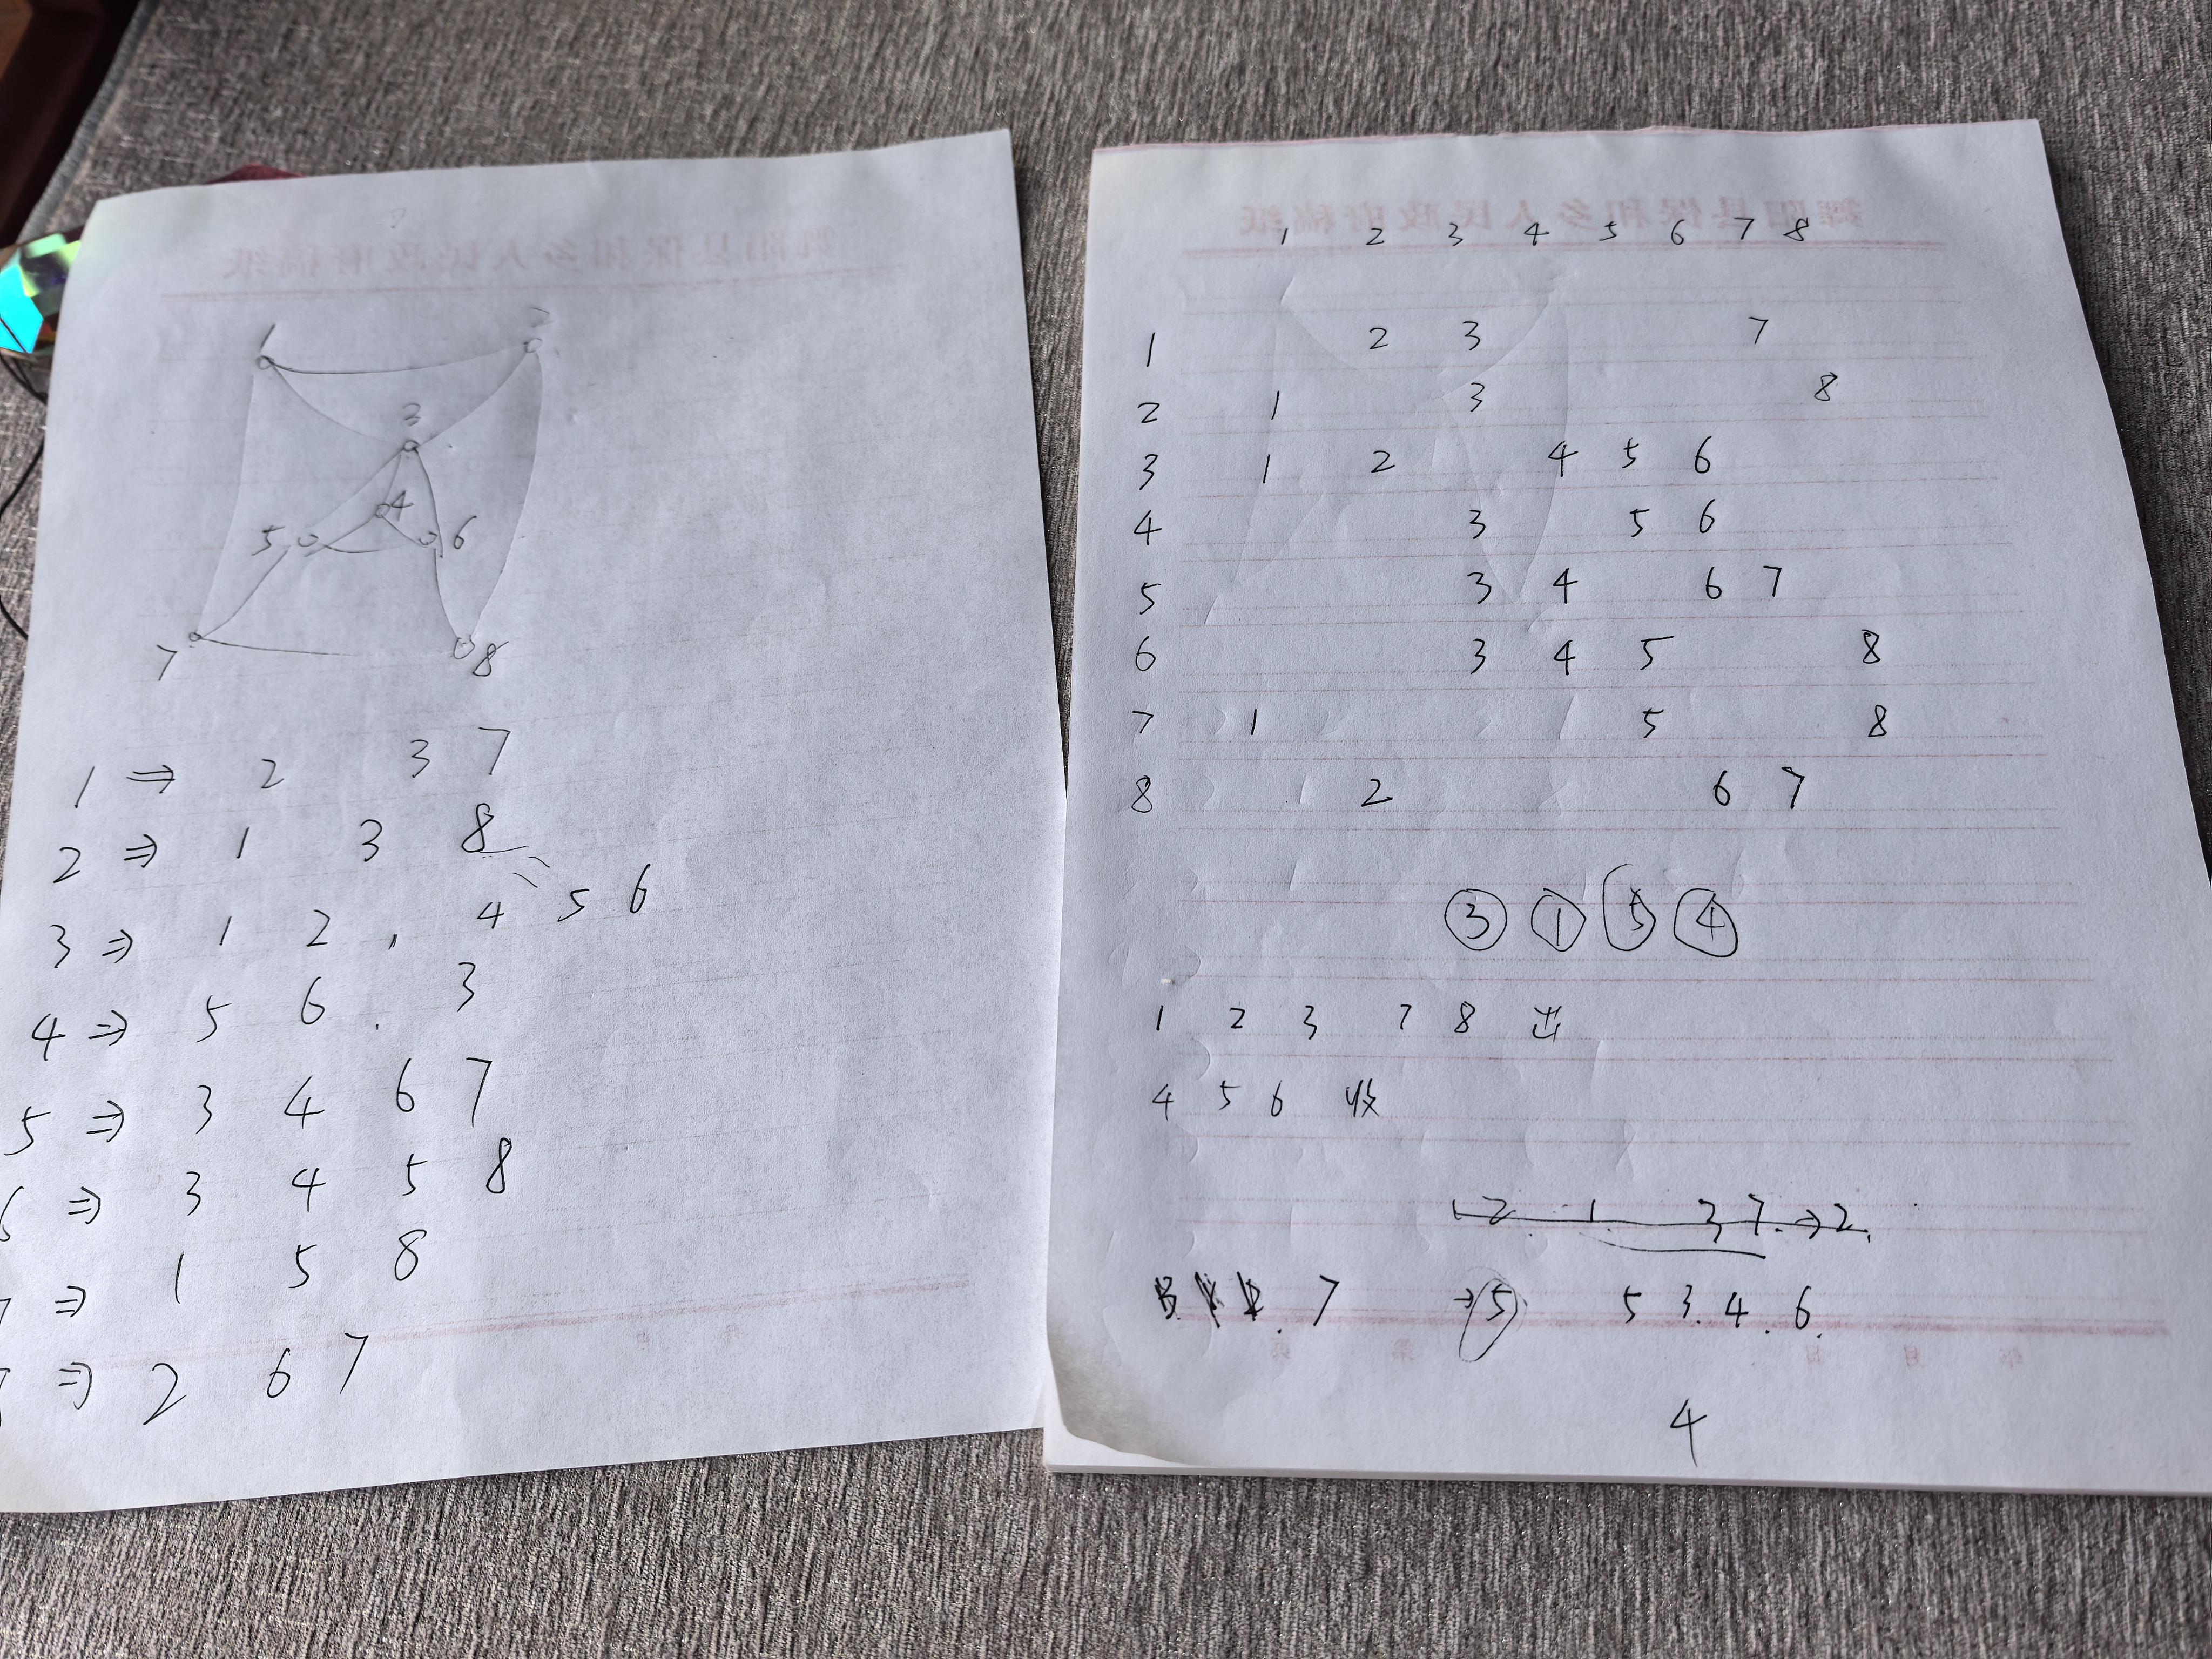 1 2
3
4
5 6
7 8
1 ⇒ 2 3 7
2 ⇒ 1 3 8
3 ⇒ 1 2 , 4 5 6
4 ⇒ 5 6 . 3
5 ⇒ 3 4 6 7
6 ⇒ 3 4 5 8
7 ⇒ 1 5 8
⇒ 2 6 7
1 2 3 4 5 6 7 8
1 2 3 7
2 1 3 8
3 1 2 4 5 6
4 3 5 6
5 3 4 6 7
6 3 4 5 8
7 1 5 8
8 2 6 7
③ ① ⑤ ④
1 2 3 7 8 出
4 5 6 收
1 2 1 3 7. → 2.
. 7 → 5 5 3. 4. 6.
4